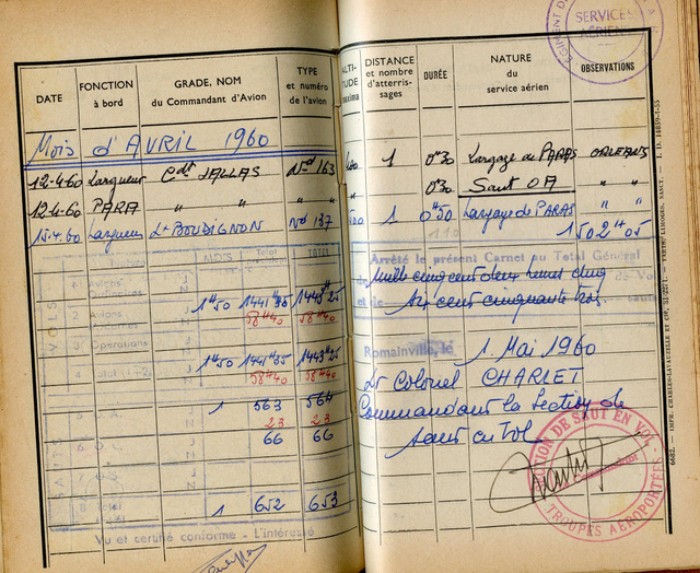 RÉGIMENT D
SERVICES
AÉRIENS
DATE FONCTION à bord GRADE, NOM du Commandant d'Avion TYPE et numéro de l'avion ALTI- TUDE maxima DISTANCE et nombre d'atterris- sages DURÉE NATURE du service aérien OBSERVATIONS
Mois d'AVRIL 1960
12-4-60 Largueur Cdt JALLAS Nd 163 1 0H30 Largage de PARAS ORLEANS
12-4-60 PARA " " " 0H30 Saut OA " "
15-4-60 Largueur Lt BOUDIGNON Nd 137 1 0H50 Largage de PARAS " "
110 1502H05
MOIS Total TOTAL
Arrêté le présent Carnet au Total Général
mille cinq cent deux heures cinq de Vol
1 Avions Ordinaires 1H50 1441H35 1443H25
et de six cent cinquante trois sauts
2 Avions 58H40 58H40
3 Opérations
4 Total (1-2) 1H50 1441H35 1443H25
58H40 58H40
Romainville, le 1 Mai 1960
Lt Colonel CHARLET
1 563 564
23 23
Commandant la Section de
saut en vol
66 66
8 Total 1 652 653
SECTION DE SAUT EN VOL
Commandant
TROUPES AÉROPORTÉES
Vu et certifié conforme - L'intéressé
6682. - IMPR. CHARLES-LAVAUZELLE ET Cie, PARIS, LIMOGES, NANCY. - I. D. 14859-7-55